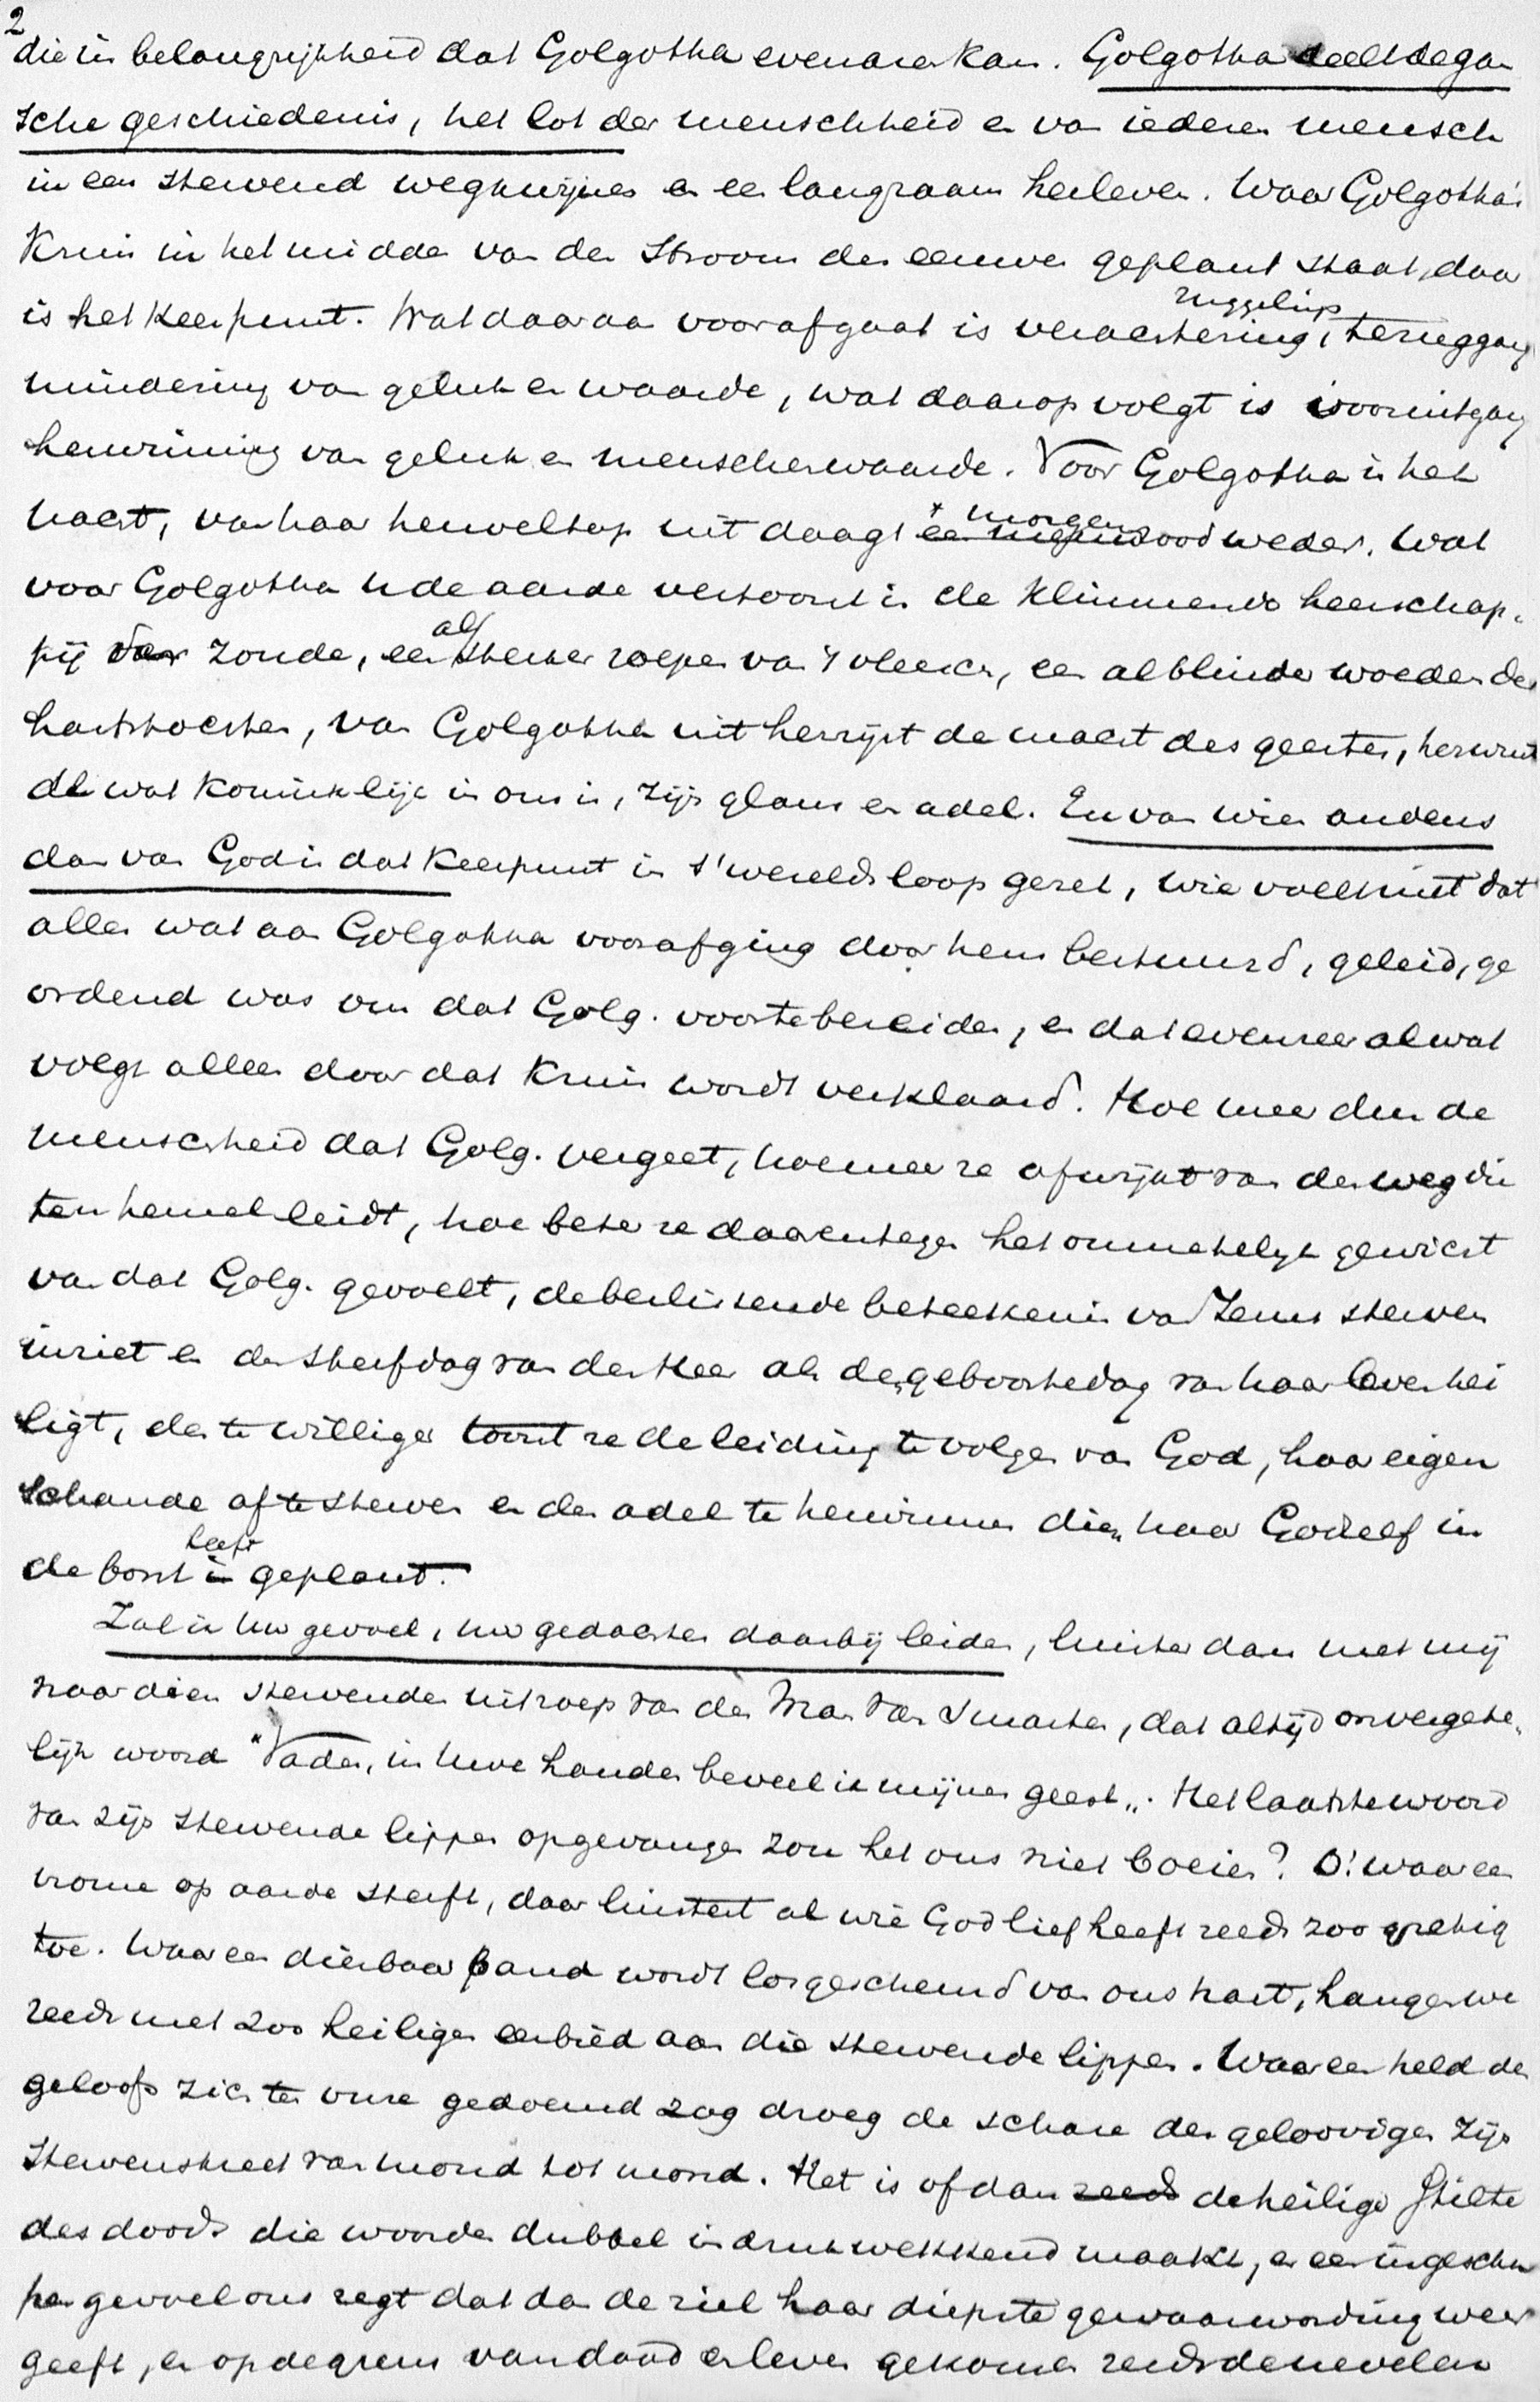 2
die in belangrijkheid dat Golgotha evenaren kan. Golgotha deelt de gan
sche geschiedenis, het lot der menschheid en van iederen mensch
in een stervend wegkwijnen en een langzaam herleven. Waar Golgotha's
Kruis in het midden van den stroom der eeuwen geplant staat, daar
is het Keerpunt. Wat daaraan voorafgaat is verachtering, ruggelings teruggang
mindering van geluk en waarde, wat daarop volgt is vooruitgang
herwinning van geluk en menschenwaarde. Voor Golgotha is het
nacht, van haar heuveltop uit daagt een morgenrood weder. Wat
voor Golgotha u de aarde vertoont is de klimmende heerschap-
pij van zonde, een al sterker roepen van 't vleesch, een al blinder woeden der
hartstochten, van Golgotha uit herrijst de macht des geestes, herwint
al wat Koninklijk in ons is, zijn glans en adel. En van wien anders
dan van God is dat Keerpunt in s'werelds loop gezet, wie voelt niet dat
alles wat aan Golgotha voorafging door hem bestuurd, geleid, ge
ordend was om dat Golg. voor te bereiden, en dat evenzeer al wat
volgt alleen door dat Kruis wordt verklaard. Hoe meer dan de
menschheid dat Golg. vergeet, hoe meer ze afwijkt van den weg die
ten hemel leidt, hoe beter ze daarentegen het onmetelijk gewicht
van dat Golg. gevoelt, de beslissende beteekenis van Jezus sterven
inziet en den sterfdag van den Heer als den geboortedag van haar leven hei
ligt, des te williger toont ze de leiding te volgen van God, haar eigen
schande af te sterven en den adel te herwinnen dien haar God zelf in
de borst heeft geplant.
Zal ik Uw gevoel, uw gedachten daarbij leiden, luister dan met mij
naar dien stervenden uitroep van den Man van Smarten, dat altijd onvergete-
lijk woord "Vader, in Uwe handen beveel ik mijnen geest". Het laatste woord
van zijn stervende lippen opgevangen zou het ons niet boeien? O! waar een
vrome op aarde sterft, daar luistert al wie God lief heeft reeds zoo gretig
toe. Waar een dierbaar pand wordt losgescheurd van ons hart, hangen we
reeds met zoo heiligen eerbied aan die stervende lippen. Waar een held des
geloofs zich ten vure gedoemd zag droeg de schare der geloovigen zijn
stervenskreet van mond tot mond. Het is of dan reeds de heilige stilte
des doods die woorden dubbel indrukwekkend maakt, en een ingescha
pen gevoel ons zegt dat dan de ziel haar diepste gewaarwording weer
geeft, en op de grens van dood en leven gekomen reeds de nevelen